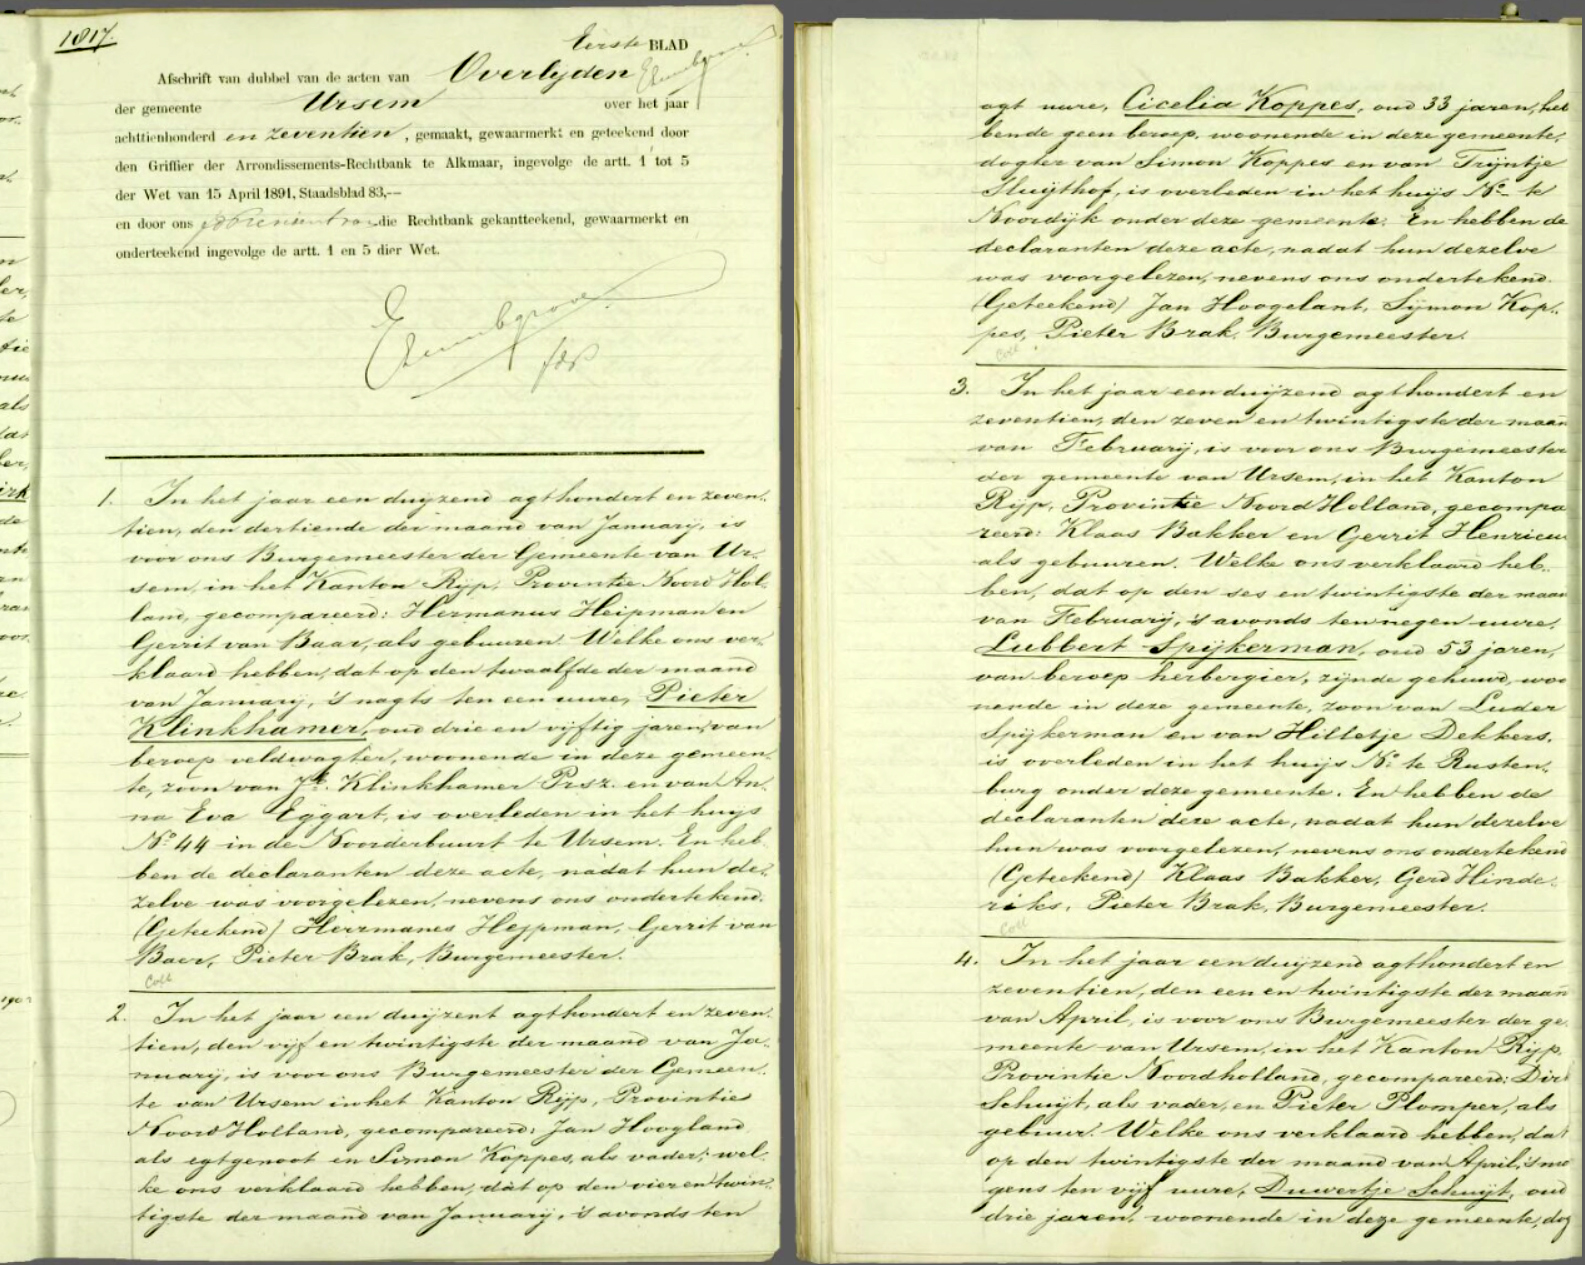 1817.
Eerste BLAD
Afschrift van dubbel van de acten van Overlijden
der gemeente Ursem over het jaar
achttienhonderd en zeventien, gemaakt, gewaarmerkt en geteekend door
den Griffier der Arrondissements-Rechtbank te Alkmaar, ingevolge de artt. 1 tot 5
der Wet van 15 April 1891, Staadsblad 83,—
en door ons die Rechtbank gekantteekend, gewaarmerkt en
onderteekend ingevolge de artt. 1 en 5 dier Wet.
1. In het jaar een duijzend agthondert en zeven-
tien, den dertiende der maand van Januarij, is
voor ons Burgemeester der Gemeente van Ur-
sem, in het Kanton Rijp, Provintie Noord Hol-
land, gecompareerd: Hermanus Heipman en
Gerrit van Baar, als gebuuren. Welke ons ver-
klaard hebben, dat op den twaalfde der maand
van Januarij, 's nagts ten een uure, Pieter
Klinkhamer, oud drie en vijftig jaren, van
beroep veldwagter, woonende in deze gemeen-
te, zoon van Jb. Klinkhamer Prsz. en van An-
na Eva Eggart, is overleden in het huijs
No. 44 in de Noorderbuurt te Ursem. En heb-
ben de declaranten deze acte, nadat hun de-
zelve was voorgelezen, nevens ons ondertekend.
(Geteekend) Herrmanes Hejpman, Gerrit van
Baer, Pieter Brak, Burgemeester.
Coll
2. In het jaar een duijzent agthondert en zeven-
tien, den vijf en twintigste der maand van Ja-
nuarij, is voor ons Burgemeester der Gemeen-
te van Ursem in het Kanton Rijp, Provintie
Noord Holland, gecompareerd: Jan Hoogland
als egtgenoot en Simon Koppes, als vader; wel-
ke ons verklaard hebben, dat op den vier en twin-
tigste der maand van Januarij, 's avonds ten
agt uure, Cicelia Koppes, oud 33 jaren, heb
bende geen beroep, woonende in deze gemeente,
dogter van Simon Koppes en van Trijntje
Sluijthof, is overleden in het huijs No. te
Noordijk onder deze gemeente. En hebben de
declaranten deze acte, nadat hun dezelve
was voorgelezen, nevens ons ondertekend.
(Geteekend) Jan Hoogelant, Sijmon Kop-
pes, Pieter Brak, Burgemeester.
Coll
3. In het jaar een duijzend agthondert en
zeventien, den zeven en twintigste der maan
van Februarij, is voor ons Burgemeester
der gemeente van Ursem, in het Kanton
Rijp, Provintie Noord Holland, gecompa
reerd: Klaas Bakker en Gerrit Henricu
als gebuuren. Welke ons verklaard heb-
ben, dat op den ses en twintigste der maan
van Februarij, 's avonds ten negen uure,
Lubbert Spijkerman, oud 53 jaren,
van beroep herbergier, zijnde gehuwd, woo
nende in deze gemeente, zoon van Luder
Spijkerman en van Hilletje Dekkers,
is overleden in het huijs No. te Rusten-
burg onder deze gemeente. En hebben de
declaranten deze acte, nadat hun dezelve
hun was voorgelezen, nevens ons ondertekend
(Geteekend) Klaas Bakker, Gerd Hinde-
riks, Pieter Brak, Burgemeester.
Coll
4. In het jaar een duijzend agthondert en
zeventien, den een en twintigste der maan
van April, is voor ons Burgemeester der ge
meente van Ursem, in het Kanton Rijp,
Provintie Noordholland, gecompareerd: Dir
Schuijt, als vader, en Pieter Plomper, als
gebuur. Welke ons verklaard hebben, dat
op den twintigste der maand van April, 's mo
gens ten vijf uure, Duwertje Schuijt, oud
drie jaren, woonende in deze gemeente, dog